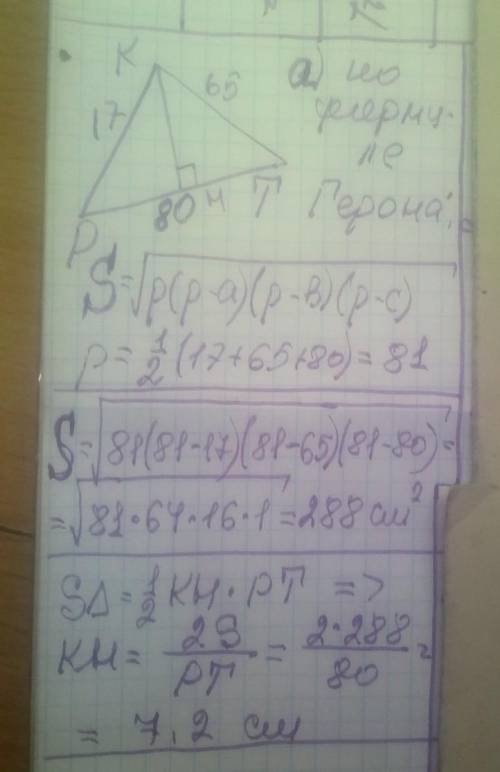 K
65
а) по
формулe
Герона:
17
P
80
H
T
S=√p(p-a)(p-b)(p-c)
p=1/2(17+65+80)=81
S=√81(81-17)(81-65)(81-80)=
=√81·64·16·1=288 см²
SΔ=1/2 KH·PT =>
KH= 2S/PT = 2·288/80 =
= 7,2 см